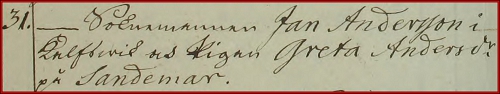 31. — Soknemannen Jan Andersson i
Kelfswik och Pigan Greta Andersdr
på Sandemar.